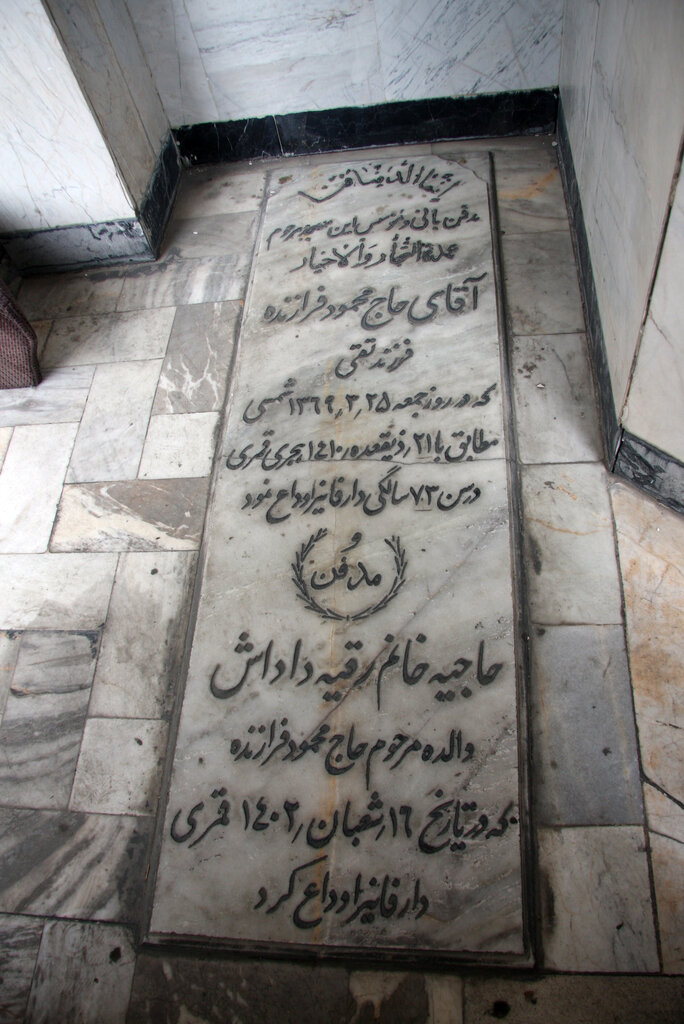 مدفن بانی و موسس این مسجد مرحوم
عمدة التجار والاخیار
آقای حاج محمود فرازنده
فرزند تقی
که در روز جمعه ۲۵ر۳ر۱۳۶۹ شمسی
مطابق با ۲۱ر ذیقعده ر۱۴۱۰ هجری قمری
در سن ۷۳ سالگی دار فانی را وداع نمود
و
مدفن
حاجیه خانم رقیه داداش
والده مرحوم حاج محمود فرازنده
که در تاریخ ۱۶ر شعبان ر۱۴۰۲ قمری
دار فانی را وداع کرد